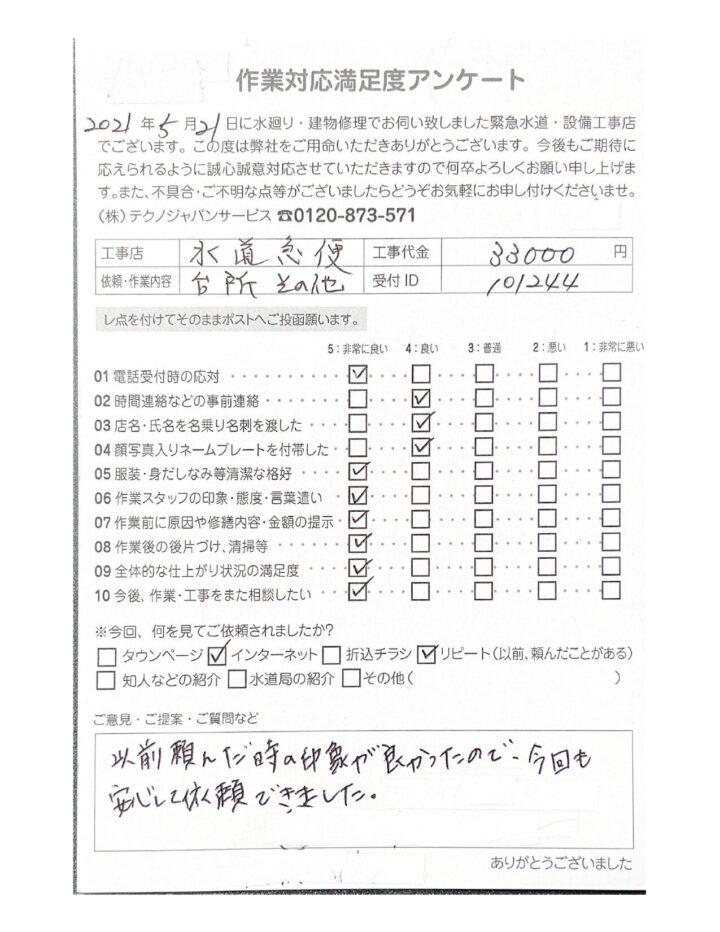 作業対応満足度アンケート
2021年5月21日に水廻り・建物修理でお伺い致しました緊急水道・設備工事店
でございます。この度は弊社をご用命いただきありがとうございます。今後もご期待に
応えられるように誠心誠意対応させていただきますので何卒よろしくお願い申し上げま
す。また、不具合・ご不明な点等がございましたらどうぞお気軽にお申し付けくださいませ。
(株)テクノジャパンサービス ☎0120-873-571
工事店 水道急便 工事代金 33000 円
依頼・作業内容 台所 その他 受付ID 101244
レ点を付けてそのままポストへご投函願います。
5:非常に良い 4:良い 3:普通 2:悪い 1:非常に悪い
01 電話受付時の応対 ☑ ☐ ☐ ☐ ☐
02 時間連絡などの事前連絡 ☐ ☑ ☐ ☐ ☐
03 店名・氏名を名乗り名刺を渡した ☐ ☑ ☐ ☐ ☐
04 顔写真入りネームプレートを付帯した ☐ ☑ ☐ ☐ ☐
05 服装・身だしなみ等清潔な格好 ☑ ☐ ☐ ☐ ☐
06 作業スタッフの印象・態度・言葉遣い ☑ ☐ ☐ ☐ ☐
07 作業前に原因や修繕内容・金額の提示 ☑ ☐ ☐ ☐ ☐
08 作業後の後片づけ、清掃等 ☑ ☐ ☐ ☐ ☐
09 全体的な仕上がり状況の満足度 ☑ ☐ ☐ ☐ ☐
10 今後、作業・工事をまた相談したい ☑ ☐ ☐ ☐ ☐
※今回、何を見てご依頼されましたか?
☐ タウンページ ☑ インターネット ☐ 折込チラシ ☑ リピート(以前、頼んだことがある)
☐ 知人などの紹介 ☐ 水道局の紹介 ☐ その他( )
ご意見・ご提案・ご質問など
以前頼んだ時の印象が良かったので、今回も
安心して依頼できました。
ありがとうございました